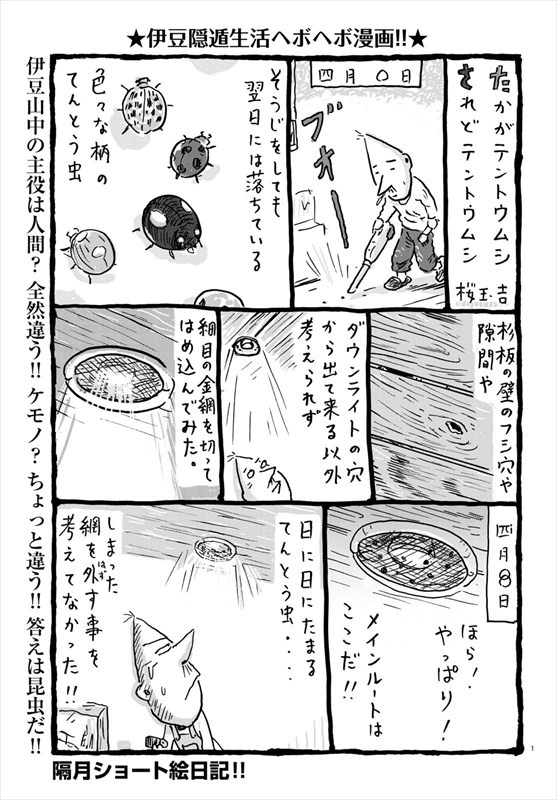 ★伊豆隠遁生活ヘボヘボ漫画!!★
伊豆山中の主役は人間? 全然違う!! ケモノ? ちょっと違う!! 答えは昆虫だ!!
たかがテントウムシ
されどテントウムシ
桜玉吉
四月〇日
ブオー
そうじをしても
翌日には落ちている
色々な柄の
てんとう虫
杉板の壁のフシ穴や
隙間や
ダウンライトの穴
から出て来る以外
考えられず
細目の金網を切って
はめ込んでみた。
四月8日
ほら!
やっぱり!
メインルートは
ここだ!!
日に日にたまる
てんとう虫・・・・
しまった
網を外す事を
はず
考えてなかった!!
1
隔月ショート絵日記!!